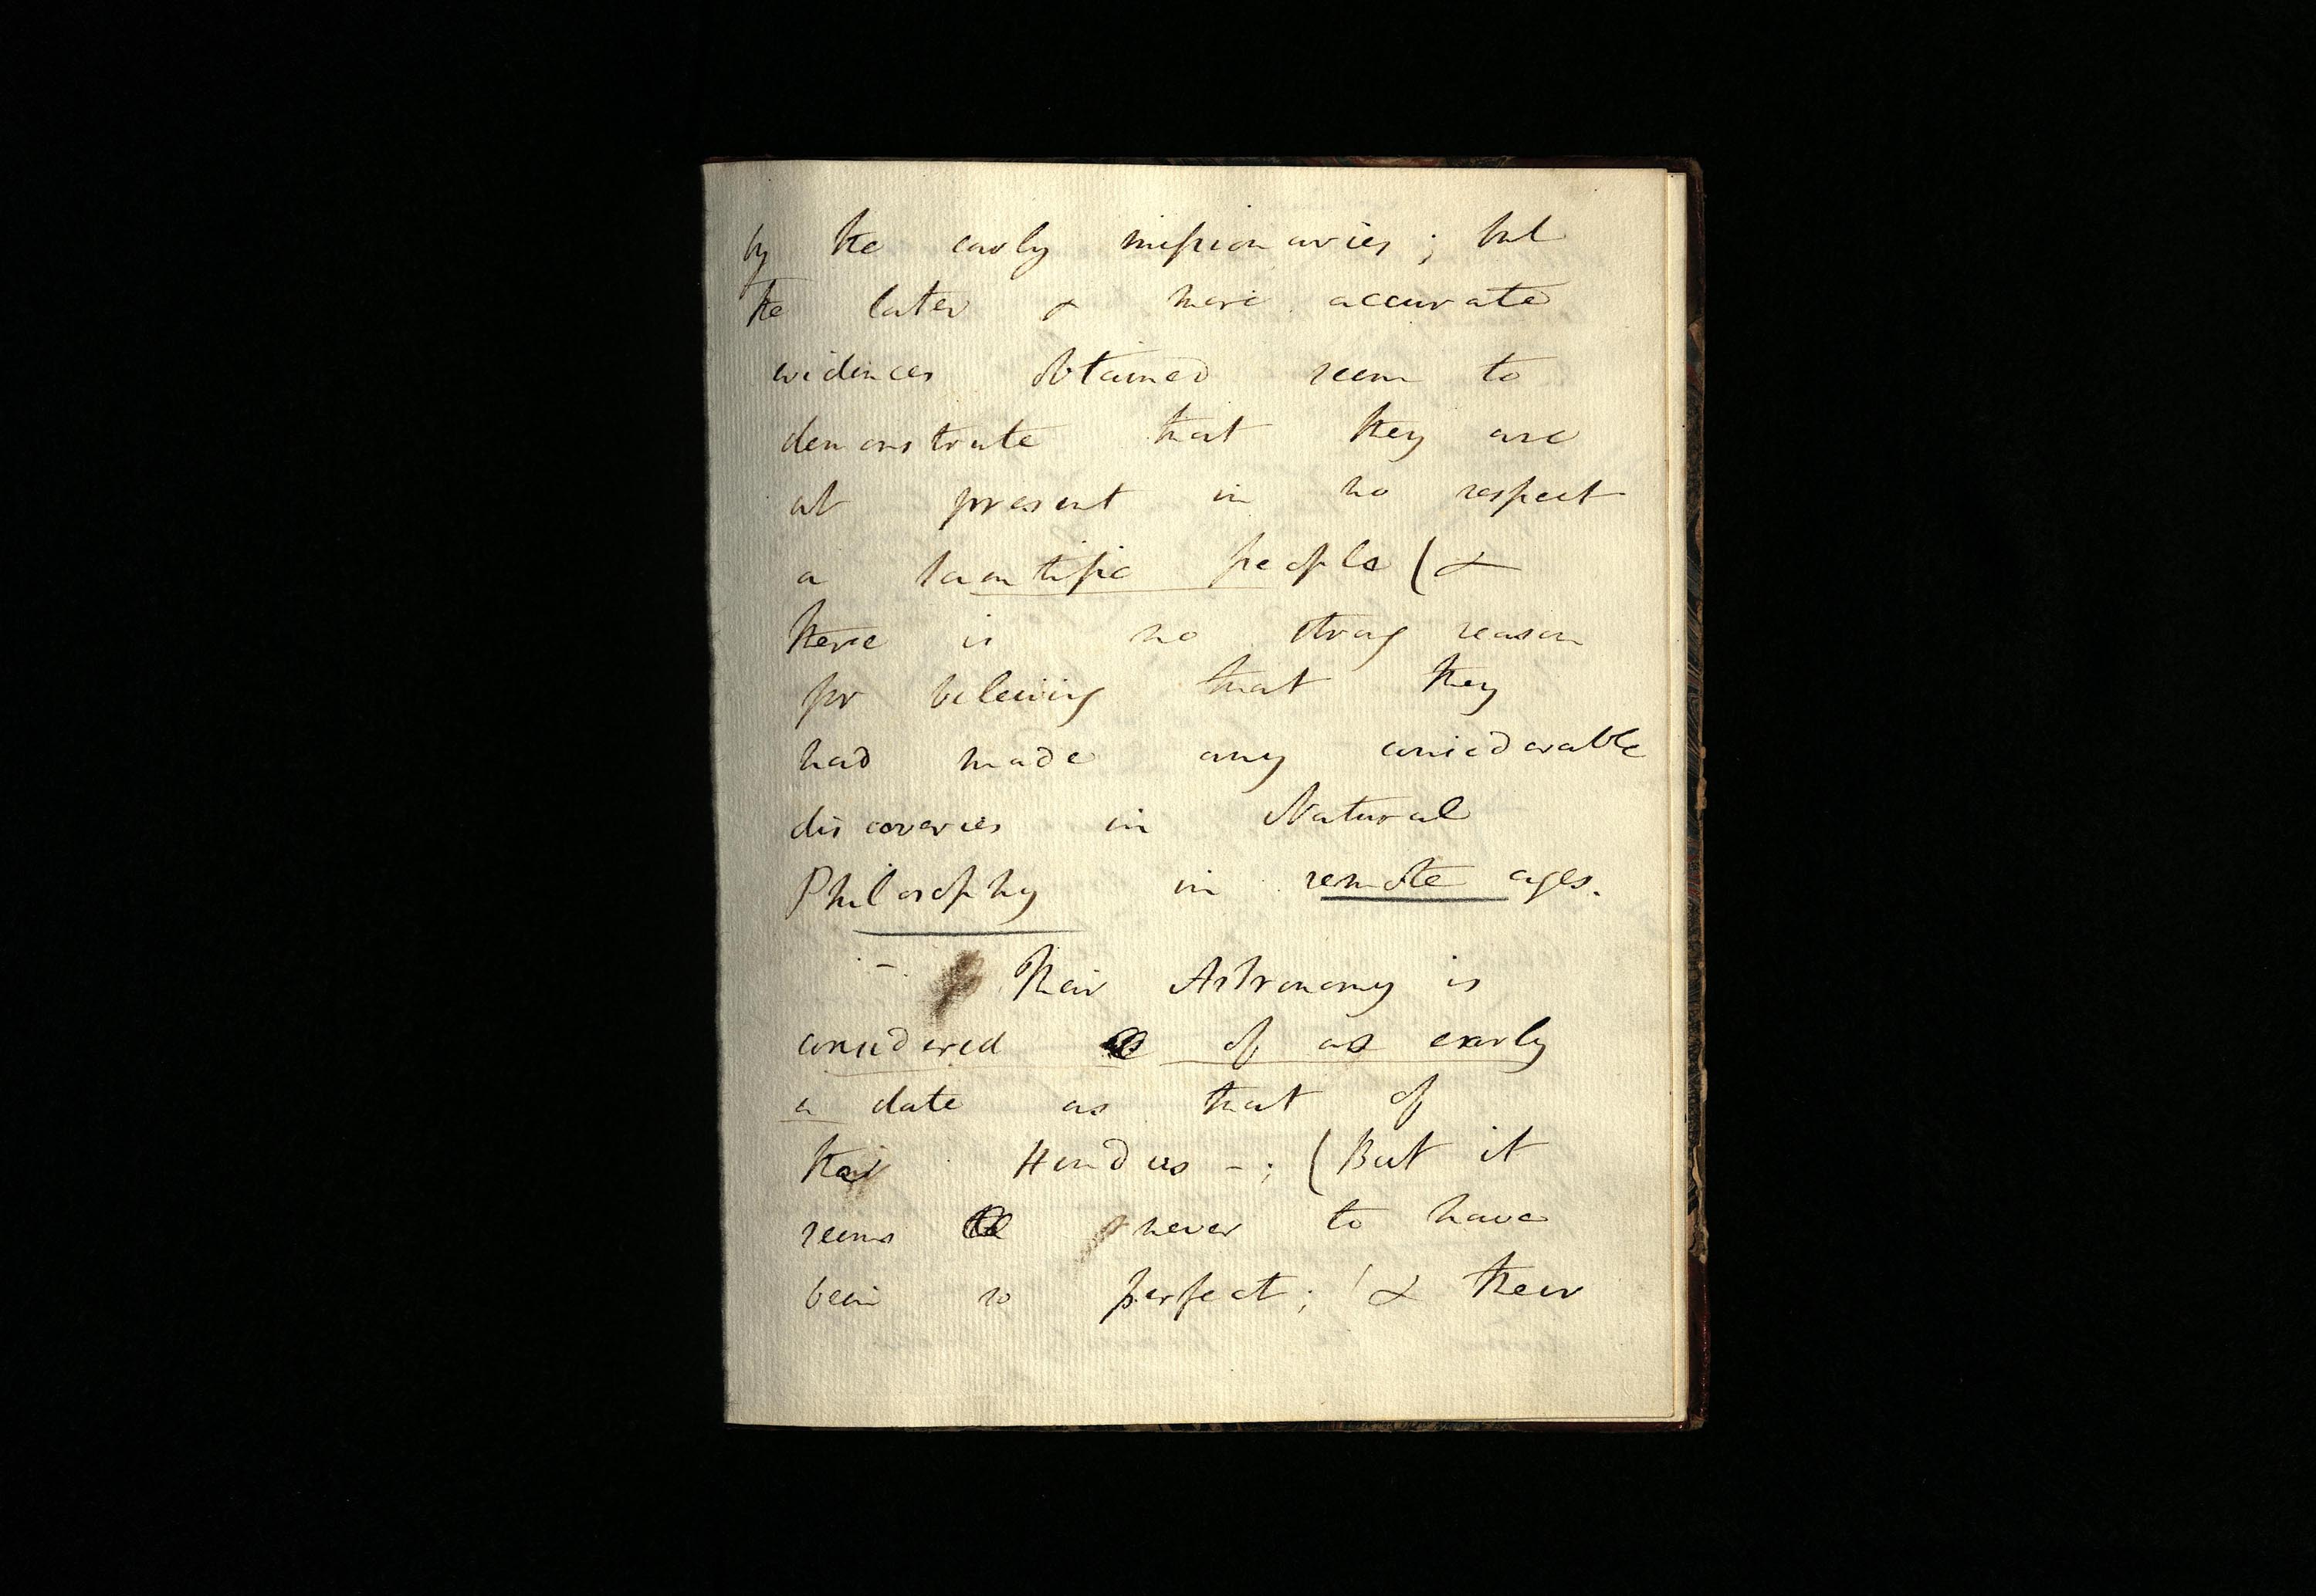 by the early missionaries; but
the later & more accurate
evidences obtained seem to
demonstrate that they are
at present in no respect
a scientific people (&
there is no strong reason
for beleiving that they
had made any considerable
discoveries in Natural
Philosophy in remote ages.
- Their Astronomy is
considered of as early
a date as that of
the Hindus -; (But it
seems never to have
been so perfect; & their